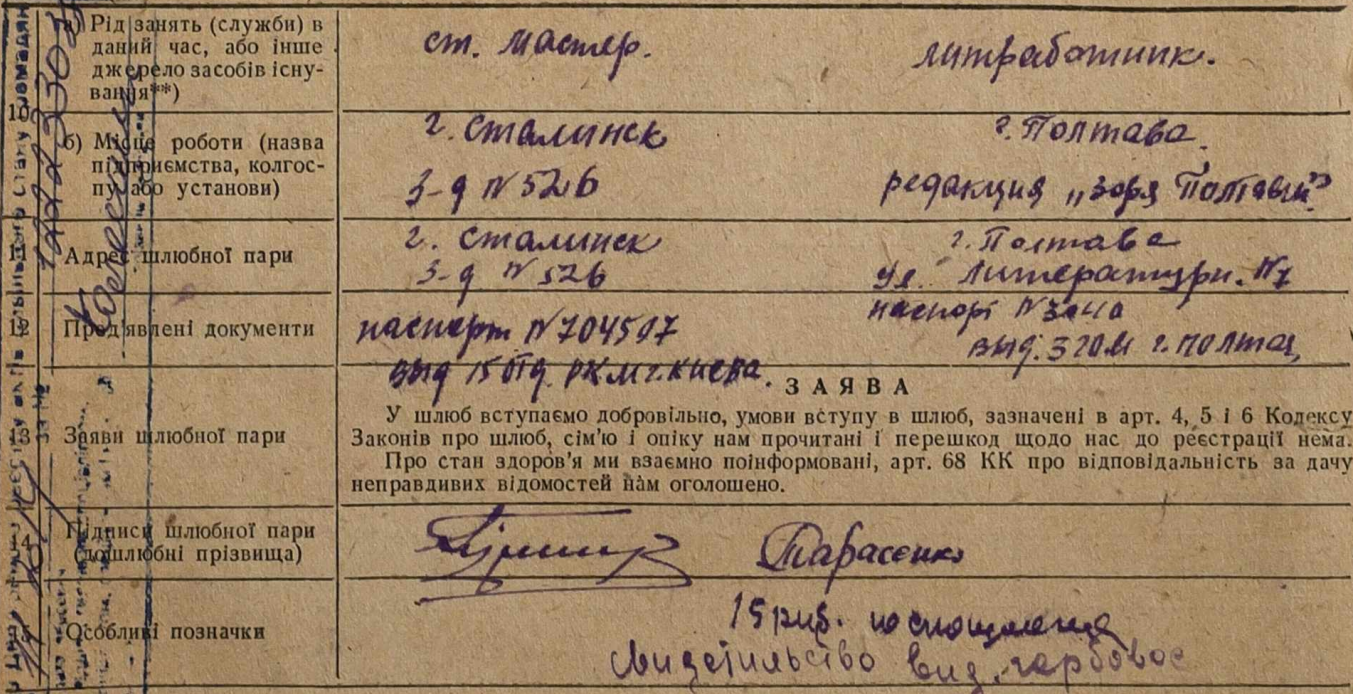 а) Рід занять (служби) в
даний час, або інше
джерело засобів існу-
вання**)
ст. мастер.
литработник.
10
б) Місце роботи (назва
підприємства, колгос-
пу або установи)
г. Сталинск
З-д №526
г. Полтава.
редакция "Зоря Полтавы"
11
Адрес шлюбної пари
г. Сталинск
З-д № 526
г. Полтава
ул. Литературн. №7
12
Пред'явлені документи
паспорт №704507
выд 15 отд. РКМ г. Киева.
паспорт
выд. 3 ГОМ г. Полтав
13
Заяви шлюбної пари
ЗАЯВА
У шлюб вступаємо добровільно, умови вступу в шлюб, зазначені в арт. 4, 5 і 6 Кодексу
Законів про шлюб, сім'ю і опіку нам прочитані і перешкод щодо нас до реєстрації нема.
Про стан здоров'я ми взаємно поінформовані, арт. 68 КК про відповідальність за дачу
неправдивих відомостей нам оголошено.
14
Підписи шлюбної пари
(дошлюбні прізвища)
Тарасенко
Особливі позначки
15 руб.